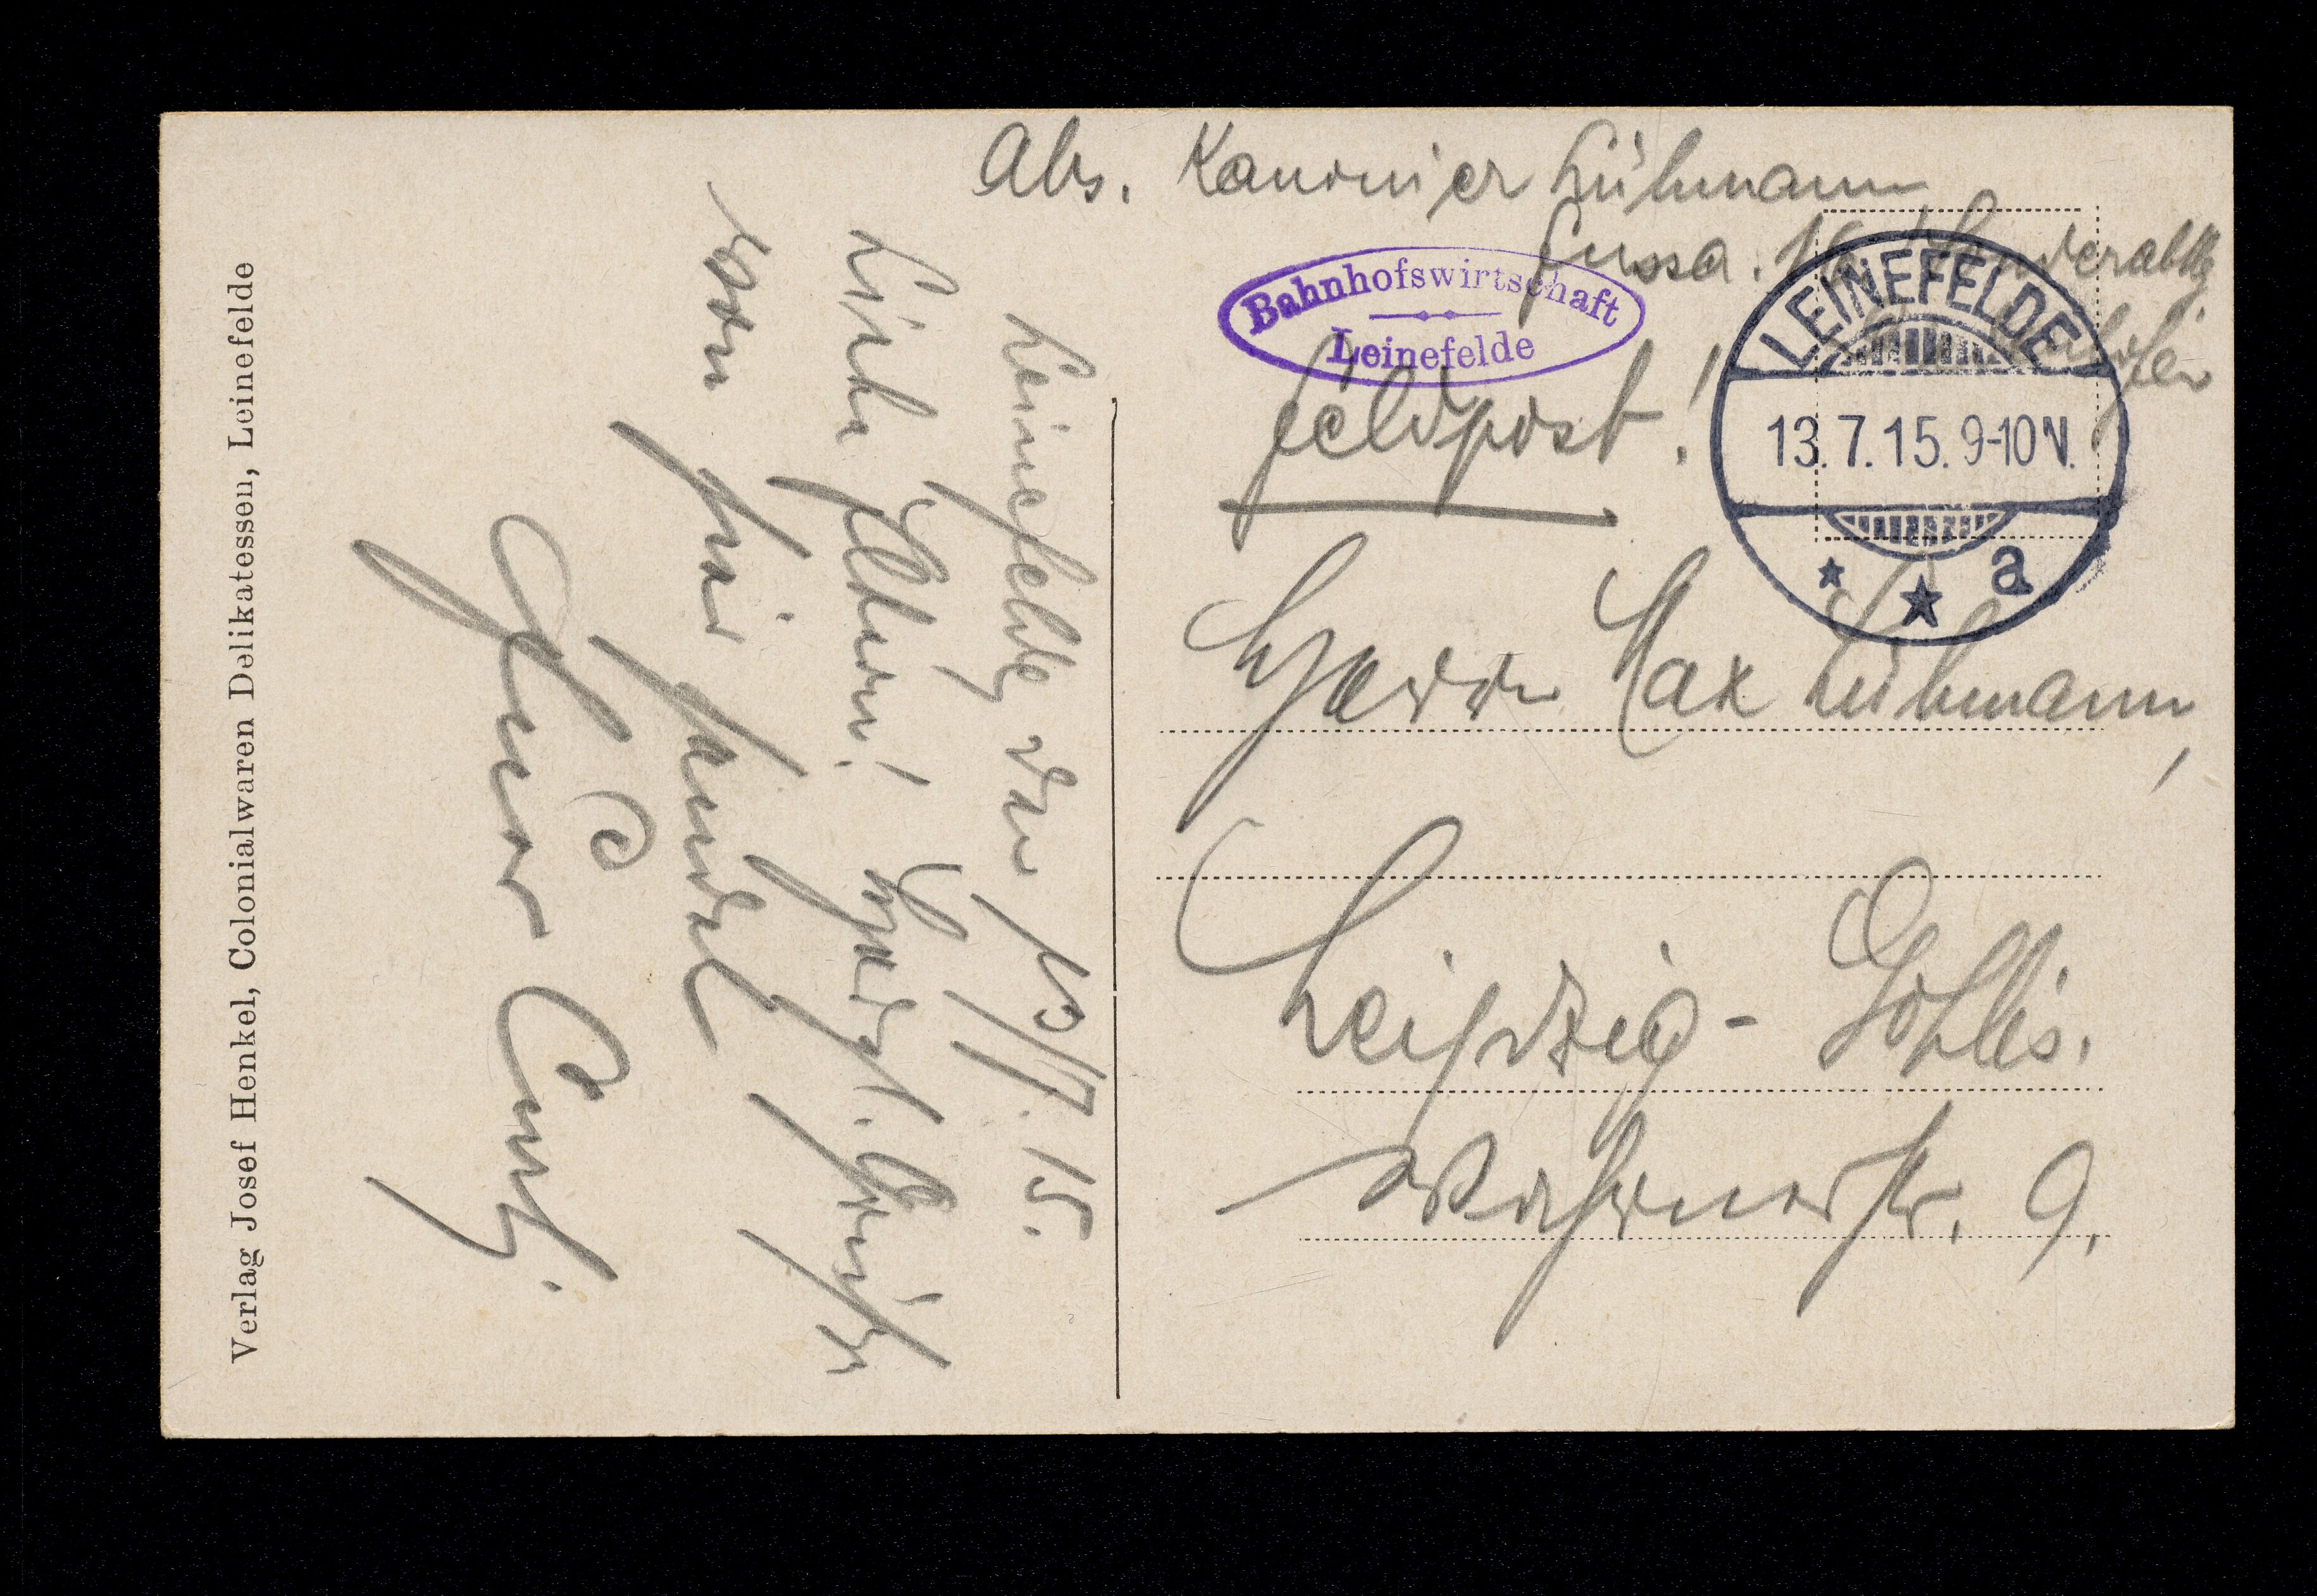 Abs. Kanonier Lühmann
Fussa. 19
Bahnhofswirtschaft
Leinefelde
Feldpost!
LEINEFELDE
13.7.15.9-10 N.
* * a
Herrn Max Lühmann,
Leipzig - Gohlis.
Wahrenerstr. 9.
Leinefelde den 13/7. 15.
Liebe Eltern! Herzl. Grüße
von hier sendet
Euer Curt.
Verlag Josef Henkel, Colonialwaren Delikatessen, Leinefelde